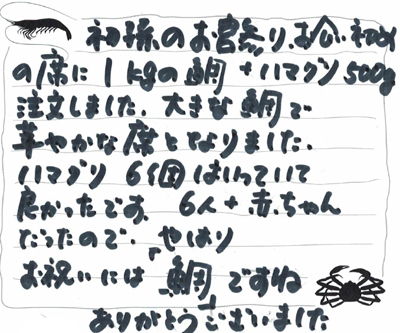 初孫のお宮参り、お食い初め
の席に1kgの鯛+ハマグリ500g
注文しました。大きな鯛で
華やかな席となりました。
ハマグリ 6個はいっていて
良かったです。 6人+赤ちゃん
だったので。 やはり
お祝いには 鯛ですね
ありがとうございました